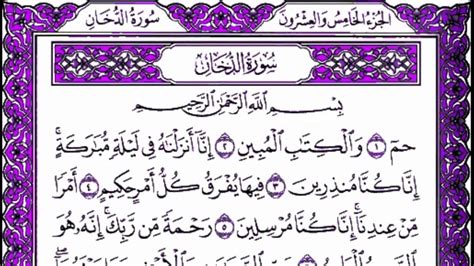 الجزء الخامس والعشرون
سورة الدخان
سورة الدخان
بِسْمِ اللَّهِ الرَّحْمَٰنِ الرَّحِيمِ
حمٓ ١ وَالْكِتَابِ الْمُبِينِ ٢ إِنَّا أَنزَلْنَاهُ فِي لَيْلَةٍ مُّبَارَكَةٍ ۚ
إِنَّا كُنَّا مُنذِرِينَ ٣ فِيهَا يُفْرَقُ كُلُّ أَمْرٍ حَكِيمٍ ٤ أَمْرًا
مِّنْ عِندِنَا ۚ إِنَّا كُنَّا مُرْسِلِينَ ٥ رَحْمَةً مِّن رَّبِّكَ ۚ إِنَّهُ هُوَ